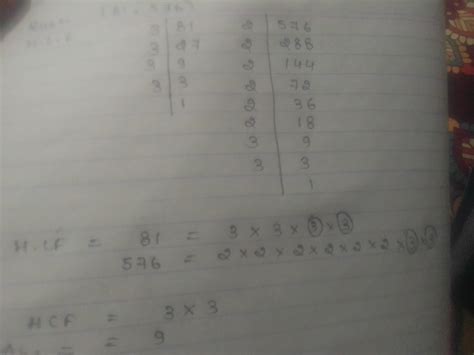 (81, 576)
H.C.F
3 | 81 2 | 576
3 | 27 2 | 288
3 | 9 2 | 144
3 | 3 2 | 72
1 2 | 36
2 | 18
3 | 9
3 | 3
1
H.C.F = 81 = 3 × 3 × 3 × 3
576 = 2 × 2 × 2 × 2 × 2 × 2 × 3 × 3
HCF = 3 × 3
= 9